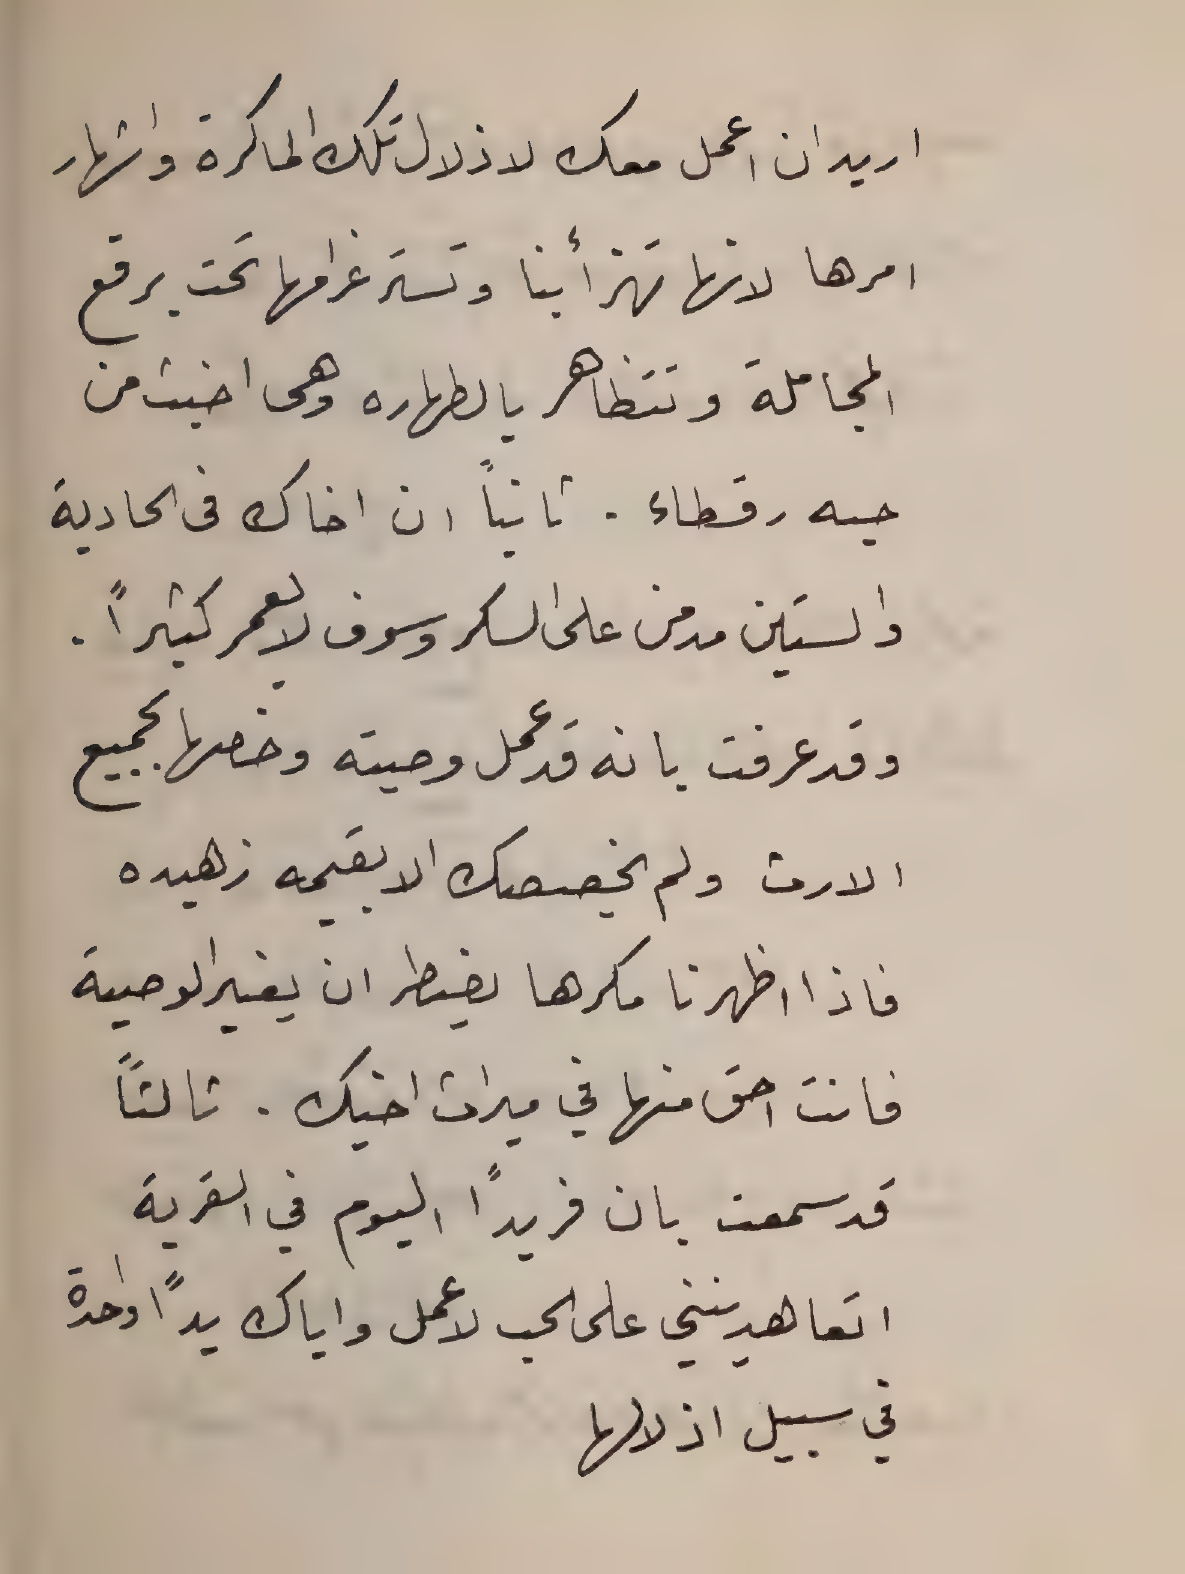 اريد ان اعمل معك لاذلال تلك الماكرة واشهار
امرها لانها تهزأ بنا وتستر غرامها تحت برقع
المجاملة وتتظاهر بالطهاره وهى اخبث من
حيه رقطاء . ثانياً ان اخاك فى الحادية
والستين مدمن على السكر وسوف لا يعمر كثيراً .
وقد عرفت بانه قد عمل وصيته وخصها بجميع
الارث ولم يخصصك الا بقيمه زهيده
فاذا اظهرنا مكرها يضطر ان يغير الوصية
فانت احق منها في ميراث اخيك . ثالثاً
قد سمعت بان فريداً اليوم في القرية
اتعاهدينني على الحب لاعمل واياك يداً واحدة
في سبيل اذلالها